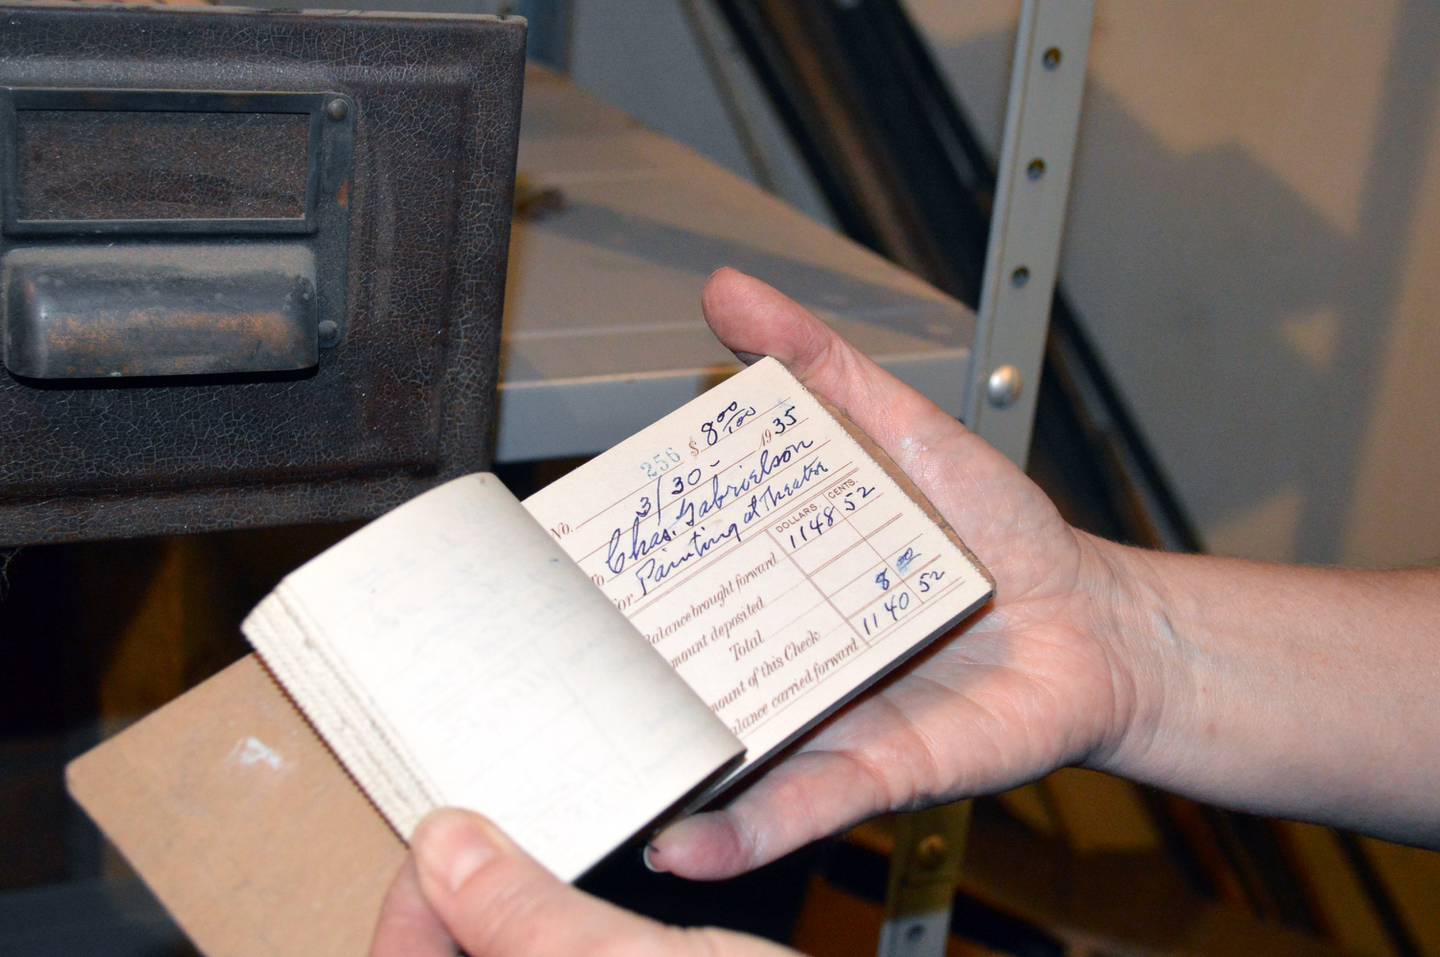 No. 256 $ 8 00/100
3/30- 1935
To Chas. Gabrielson
For Painting at Theatre
DOLLARS. CENTS.
Balance brought forward 1148 52
Amount deposited
Total
Amount of this Check 8 00
Balance carried forward 1140 52